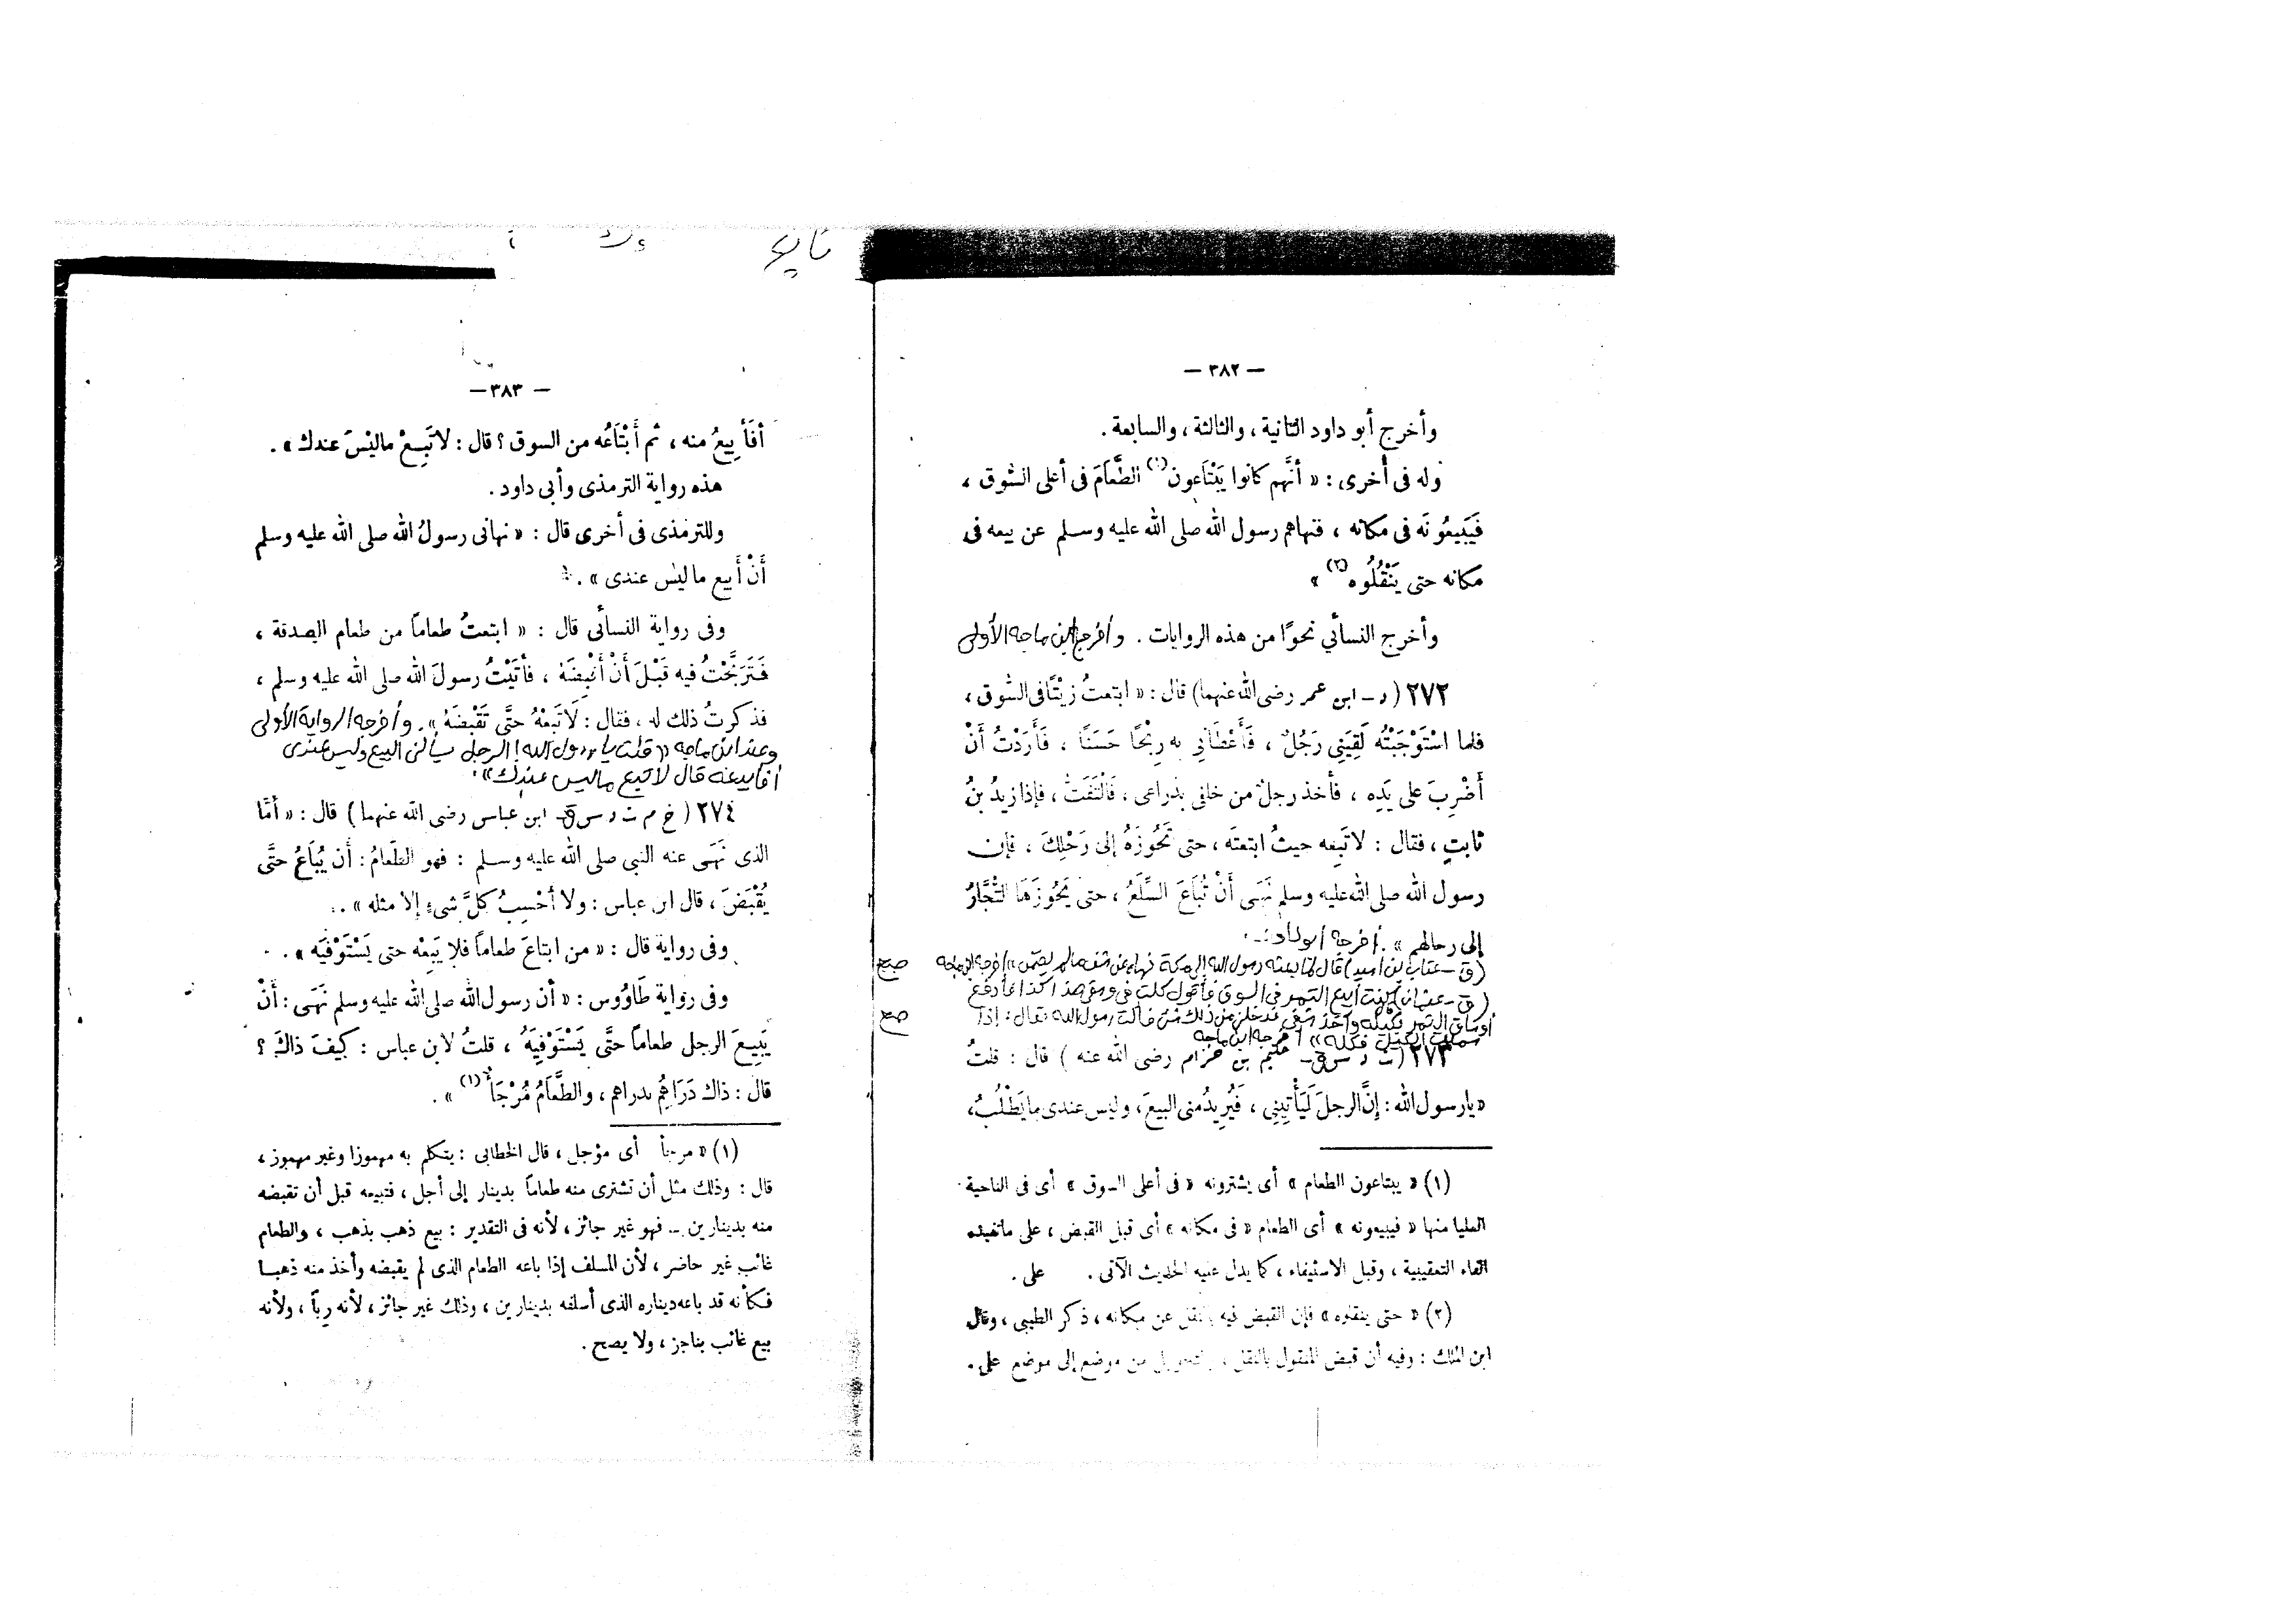 — ٣٨٢ —
وأخرج أبو داود الثانية ، والثالثة ، والسابعة .
وله فى أخرى : « أنَّهم كانوا يَبْتَاعون (١) الطَّعَامَ فى أعلى السُّوق ،
فَيَبيعُونَه فى مكانه ، فنهاهم رسول الله صلى الله عليه وسلم عن بيعه فى
مكانه حتى يَنْقُلُوه (٢) »
وأخرج النسائي نحوًا من هذه الروايات . وأخرج ابن ماجه الأولى
٢٧٢ ( د ـ ابن عمر رضى الله عنهما ) قال : « ابتعتُ زيْتًا فى السُّوق ،
فلما اسْتَوْجَبْتُه لَقِيَنِى رَجُلٌ ، فَأَعْطَانِى به رِبْحًا حَسَنًا ، فَأَرَدْتُ أَنْ
أَضْرِبَ على يَدِه ، فأخذ رجلٌ من خلفى بذراعى ، فَالْتَفَتُّ ، فإذا زيدُ بنُ
ثابتٍ ، فقال : لا تَبِعه حيثُ ابتعتَه ، حتى تَحُوزَهُ إلى رَحْلِكَ ، فإن
رسول الله صلى الله عليه وسلم نَهَى أَنْ تُبَاعَ السِّلَعُ ، حتى يَحُوزَهَا التُّجَّارُ
إلى رحالهم » . أخرجه أبو داود .
( ق ـ عتاب بن أسيد ) قال لما بعثه رسول الله إلى مكة نهاه عن شف ما لم يضمن » أخرجه ابن ماجه صح
( ق ـ عثمان ) كنت أبيع التمر فى السوق فأقول كلت فى وسقى هذا كذا فأدفع
أوساق التمر بكيله وآخذ شفى فدخلنى من ذلك شئ فسألت رسول الله فقال : إذا صح
سميت الكيل فكله » أخرجه ابن ماجه
٢٧٣ ( ت د س ق ـ حكيم بن حزام رضى الله عنه ) قال : قلتُ
« يا رسول الله : إنَّ الرجلَ لَيَأْتِينِى ، فَيُرِيدُ منى البيعَ ، وليس عندى ما يَطْلُبُ ،
(١) « يبتاعون الطعام » أى يشترونه « فى أعلى السوق » أى فى الناحية
العليا منها « فيبيعونه » أى الطعام « فى مكانه » أى قبل القبض ، على ما تفيده
الفاء التعقيبية ، وقبل الاستيفاء ، كما يدل عليه الحديث الآتى . على .
(٢) « حتى ينقلوه » فإن القبض فيه بالنقل عن مكانه ، ذكر الطيبى ، وقال
ابن الملك : وفيه أن قبض المنقول بالنقل ، والتحويل من موضع إلى موضع على .
— ٣٨٣ —
أفَأَبِيعُ منه ، ثم أَبْتَاعُه من السوق ؟ قال : لا تَبِعْ ما ليْسَ عندك » .
هذه رواية الترمذى وأبى داود .
وللترمذى فى أخرى قال : « نهانى رسولُ الله صلى الله عليه وسلم
أَنْ أَبيع ما ليس عندى » .
وفى رواية النسائى قال : « ابتعتُ طعاماً من طعام الصدقة ،
فَتَرَبَّحْتُ فيه قَبْلَ أَنْ أَقْبِضَهُ ، فأتَيْتُ رسولَ الله صلى الله عليه وسلم ،
فذكرتُ ذلك له ، فقال : لَا تَبِعْهُ حتَّى تَقْبِضَهُ » . وأخرجه الرواية الأولى
وعند ابن ماجه « قلت يا رسول الله ! الرجل يسألنى البيع وليس عندى
أفأبيعه قال لا تبع ما ليس عندك » .
٢٧٤ ( خ م ت د س ق ـ ابن عباس رضى الله عنهما ) قال : « أمَّا
الذى نَهَى عنه النبى صلى الله عليه وسلم : فهو الطَعامُ : أَن يُبَاعُ حتَّى
يُقْبَضَ ، قال ابن عباس : ولا أحْسِبُ كلَّ شىءٍ إلا مثله » .
وفى رواية قال : « من ابتاعَ طعاماً فلا يَبِعْه حتى يَسْتَوْفِيَه » .
وفى رواية طَاوُوس : « أن رسول الله صلى الله عليه وسلم نَهَى : أَنْ
يَبِيعَ الرجل طعاماً حتَّى يَسْتَوْفِيَهُ ، قلتُ لابن عباس : كيفَ ذاكَ ؟
قال : ذاك دَرَاهِمُ بدراهم ، والطَّعَامُ مُرْجَأُ (١) » .
(١) « مرجأ أى مؤجل ، قال الخطابى : يتكلم به مهموزا وغير مهموز ،
قال : وذلك مثل أن تشترى منه طعاماً بدينار إلى أجل ، فتبيعه قبل أن تقبضه
منه بدينارين ـ فهو غير جائز ، لأنه فى التقدير : بيع ذهب بذهب ، والطعام
غائب غير حاضر ، لأن المسلف إذا باعه الطعام الذى لم يقبضه وأخذ منه ذهبا
فكأنه قد باعه ديناره الذى أسلفه بدينارين ، وذلك غير جائز ، لأنه رباً ، ولأنه
بيع غائب بناجز ، ولا يصح .